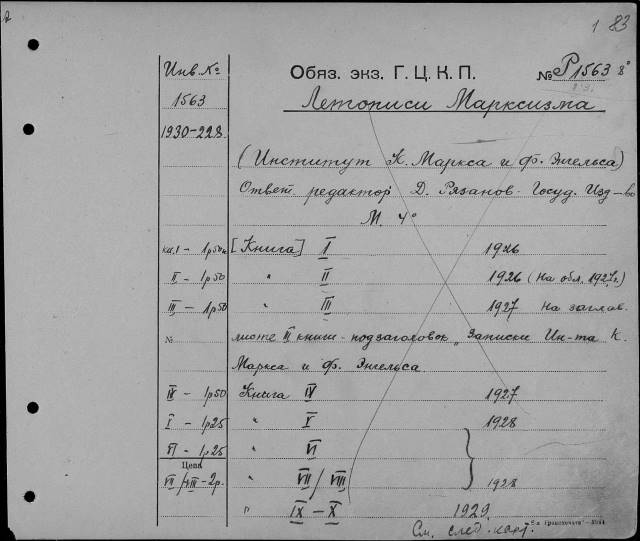 1 83
Инв. №
Обяз. экз. Г. Ц. К. П. № Р1563 8°
1563
Летописи Марксизма
1930-228.
(Институт К. Маркса и Ф. Энгельса)
Ответ. редактор Д. Рязанов. Госуд. Изд-во
М. 4°
кн. I – 1р50к [Книга] I 1926
II – 1р50 " II 1926 (На обл. 1927г.)
III – 1р50 " III 1927 На заглав.
№ листе III книги-подзаголовок „Записки Ин-та К.
Маркса и Ф. Энгельса.
IV – 1р50 Книга IV 1927
V – 1р25 " V 1928
VI – 1р25 " VI
Цена
VII/VIII – 2р. " VII/VIII 1928
" IX – X 1929
См. след. карт.